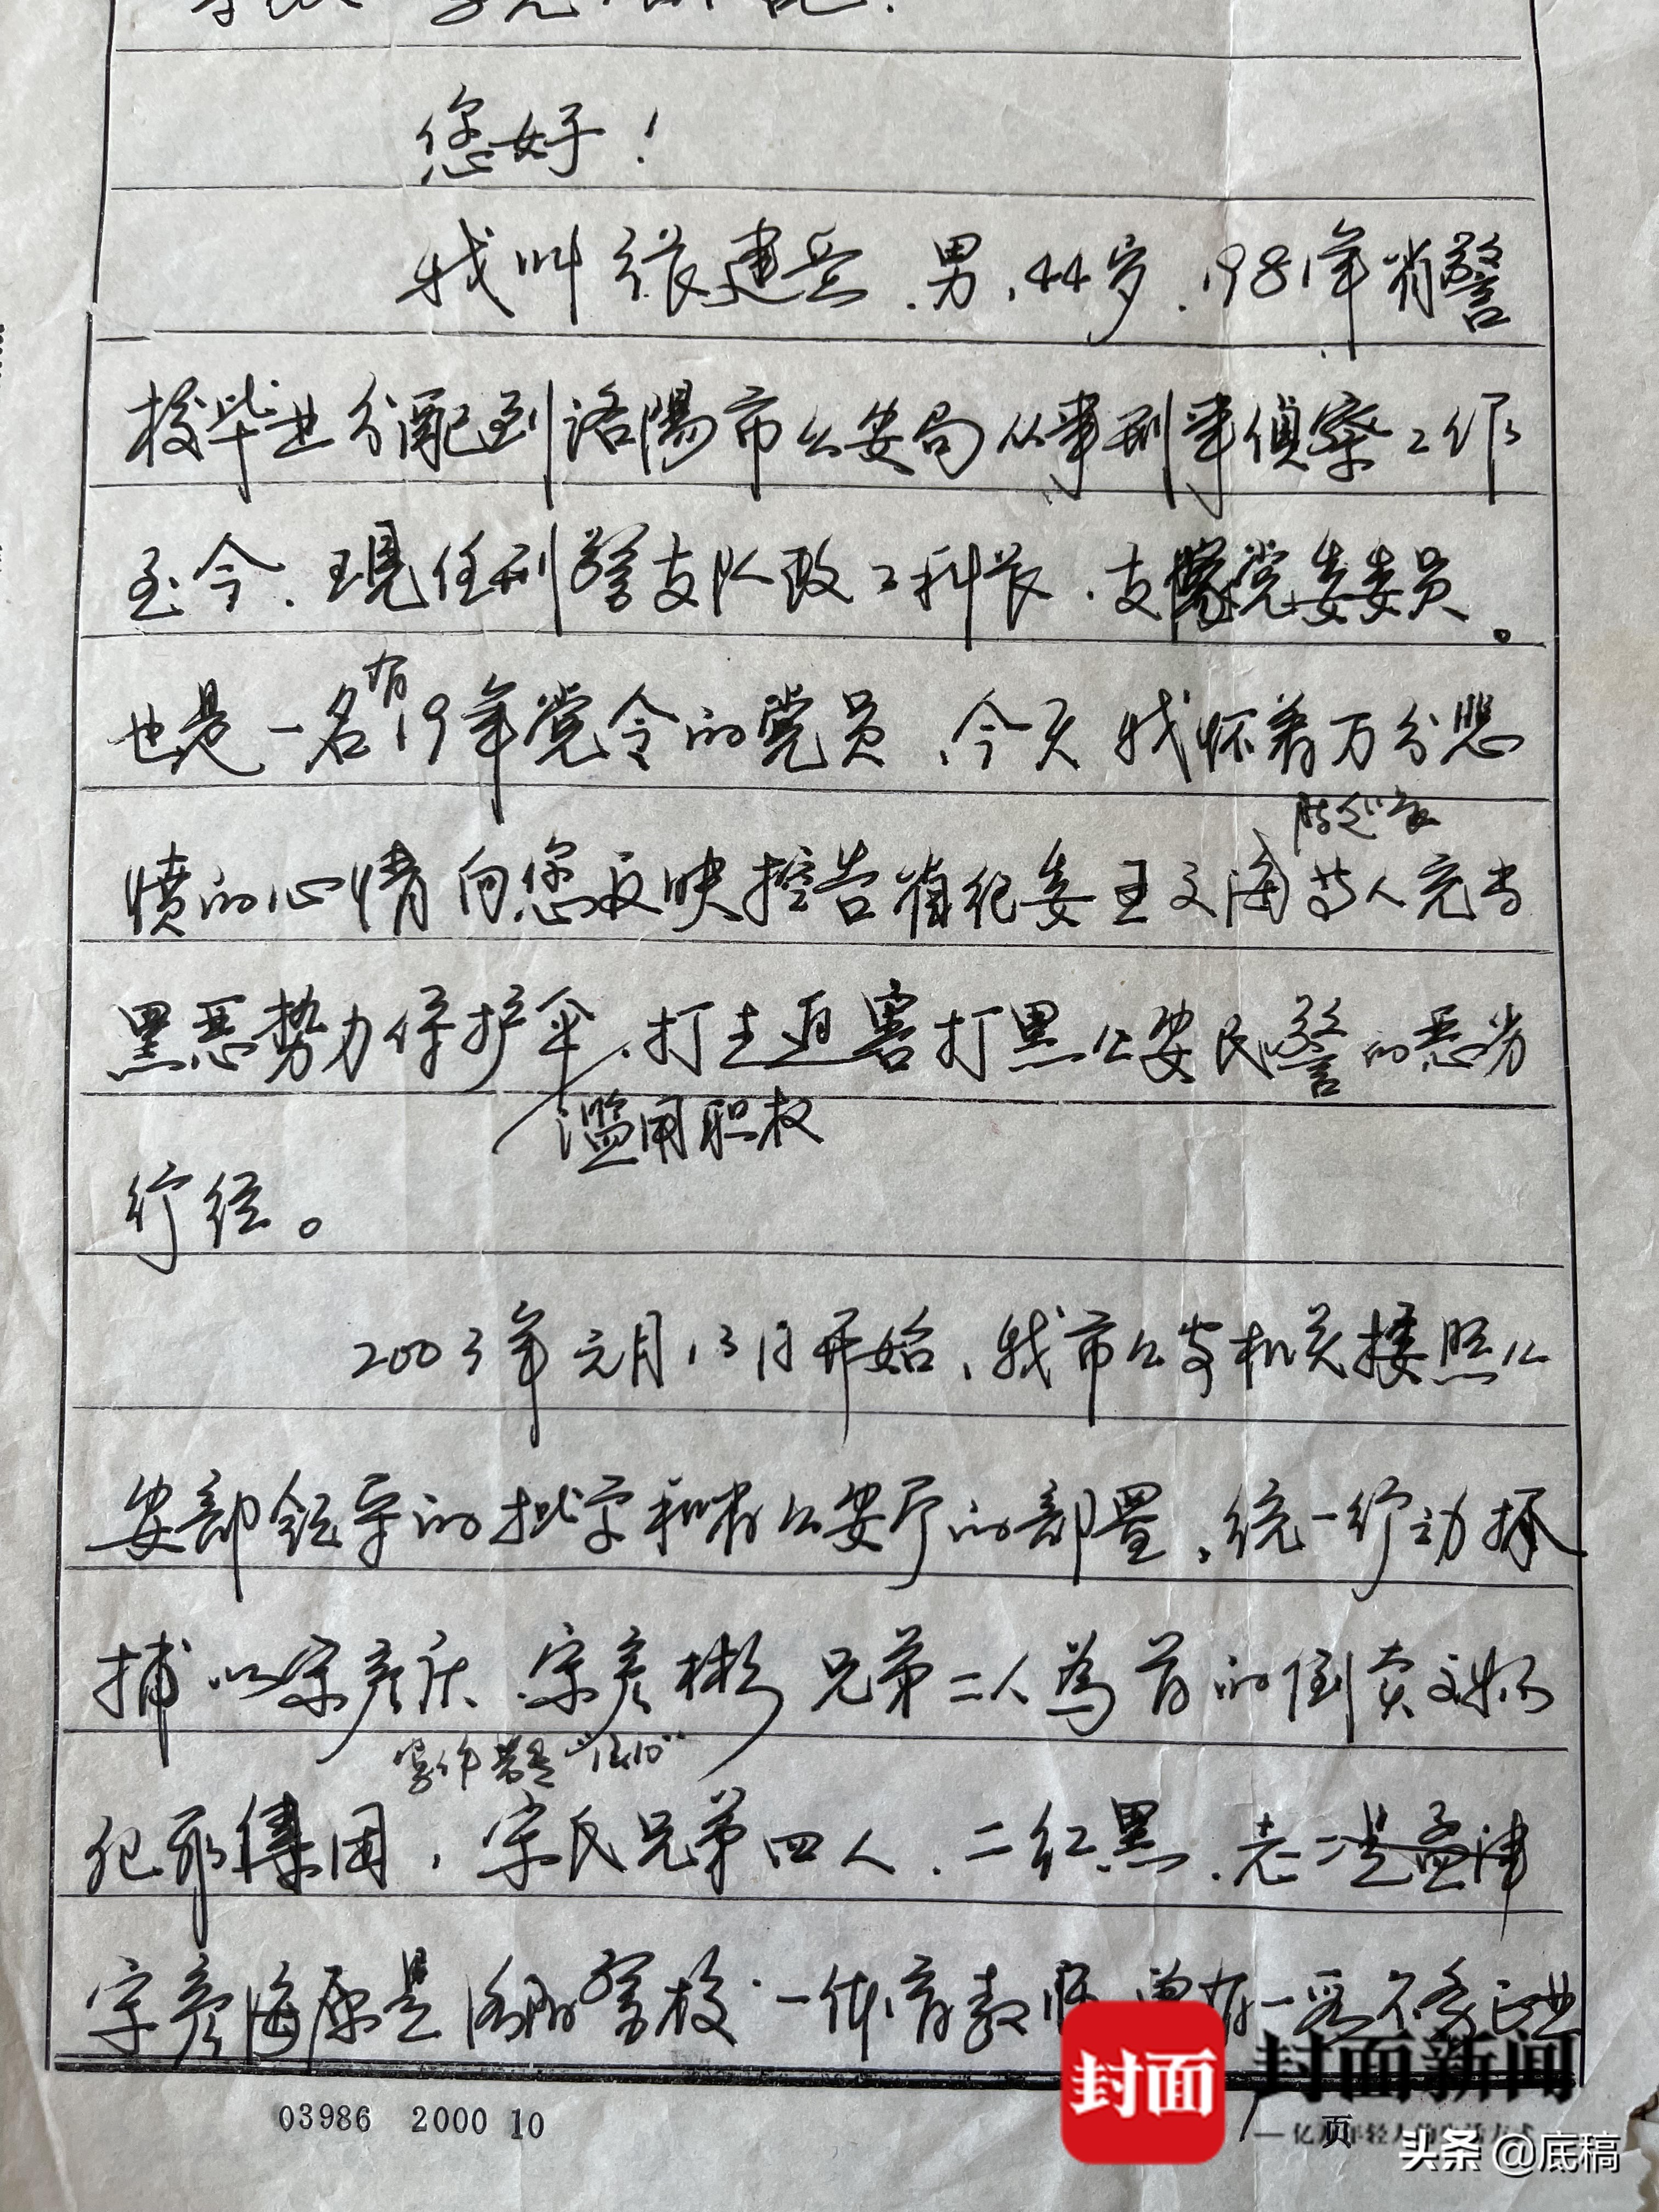 您好！
我叫张建兵、男、44岁、1981年省警
校毕业分配到洛陽市公安局从事刑事偵察工作
至今、現任刑警支队政工科长、支隊党委委员。
也是一名有19年党令的党员、今天我怀着万分悲
愤的心情向您反映控告省纪委王文海等人充当
黑恶势力保护伞、打击迫害打黑公安民警的恶劣
滥用职权
行径。
2003年元月13日开始、我市公安机关按照公
安部领导的批字和省公安厅的部署、统一行动抓
捕以宋彦庆、宋彦彬兄弟二人為首的倒卖文物
犯罪集团、宋氏兄弟四人、二红二黑、老二是孟津
宋彦海原是洛阳警校一体育教师
03986 2000 10
页
封面
封面新闻
头条 @底稿